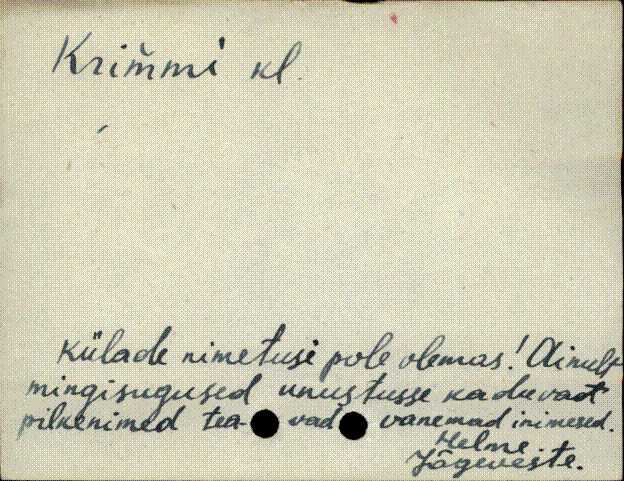 Krimmi kl.
Külade nimetusi pole olemas! Ainult
mingisugused unustusse kaduvad
pilkenimed tea- vad vanemad inimesed.
Helme
Jõgeveste.